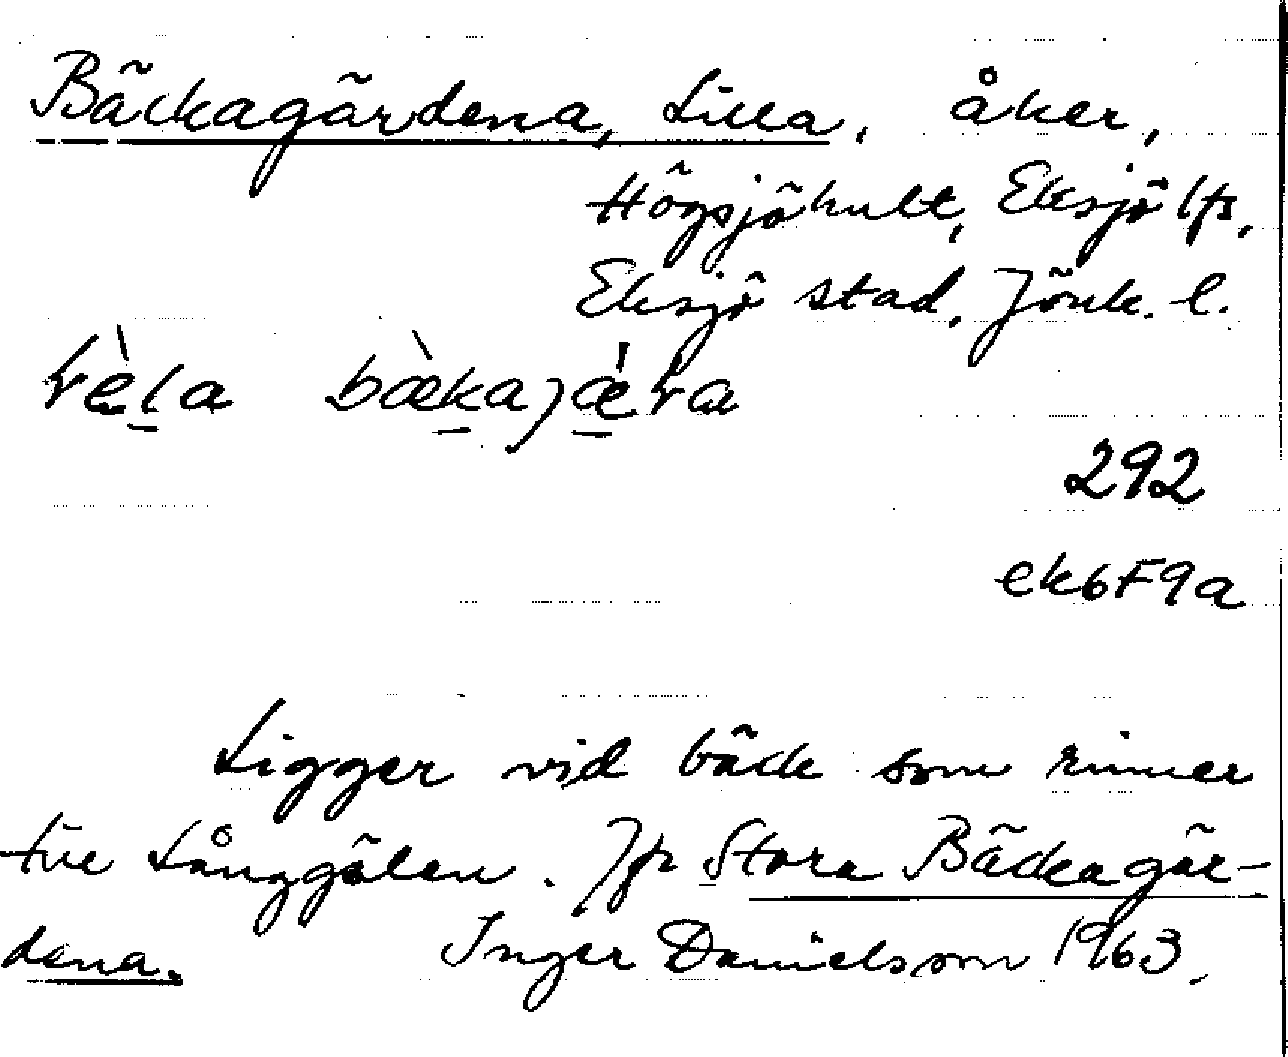 Bäckagärdena, Lilla, åker,
Högsjöhult, Eksjö lfs,
Eksjö stad, Jönk. l.
bäkajæra
292
ek6F9a
Ligger vid bäck som rinner
till Långgölen. Jfr Stora Bäckagär-
dena. Inger Danielsson 1963.